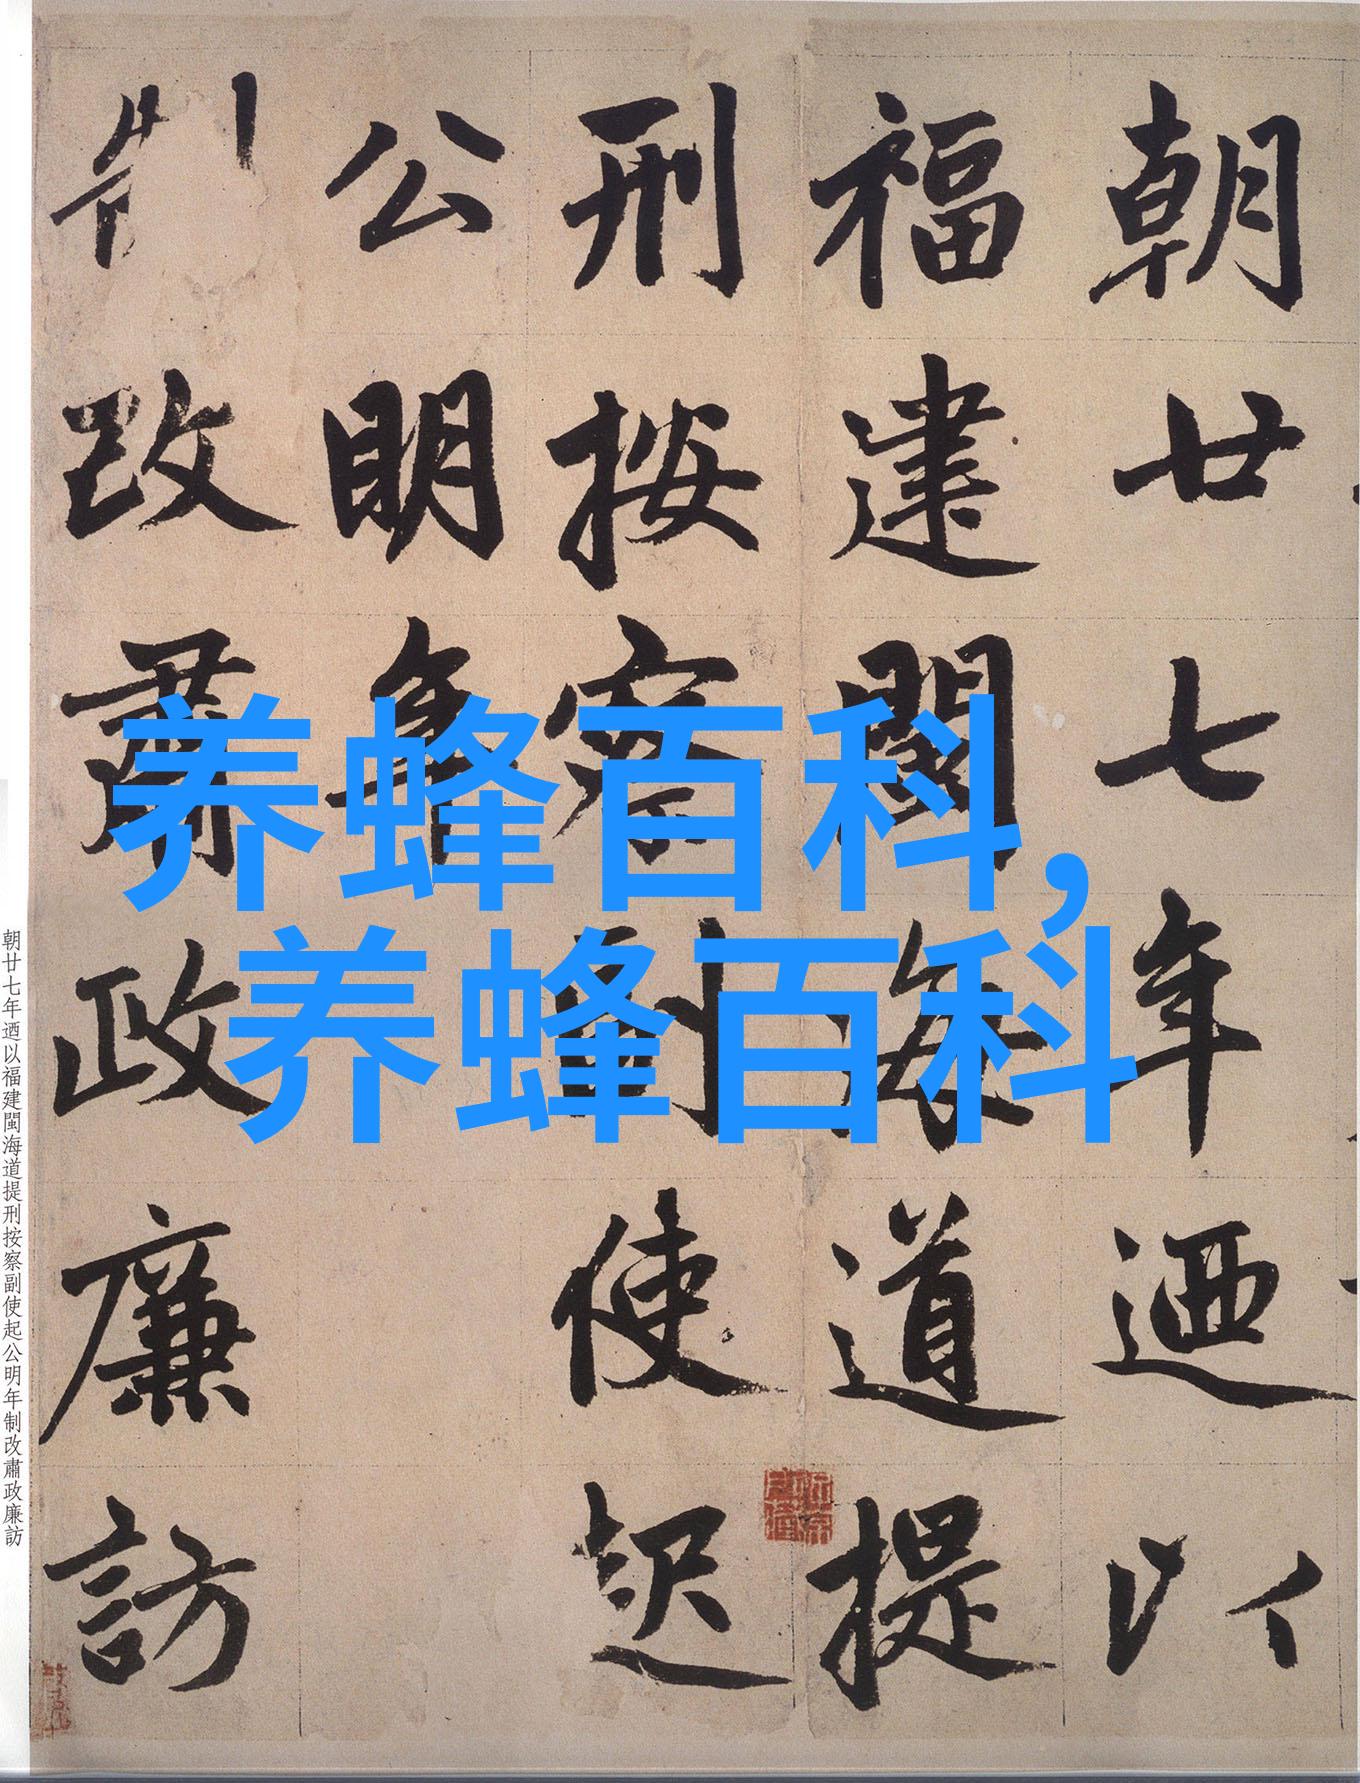 朝廿七年迺以
福建閩海道提
刑按察副使起
公明年
制改肅政廉訪
养蜂百科,
养蜂百科
朝廿七年迺以福建閩海道提刑按察副使起公明年制改肅政廉訪